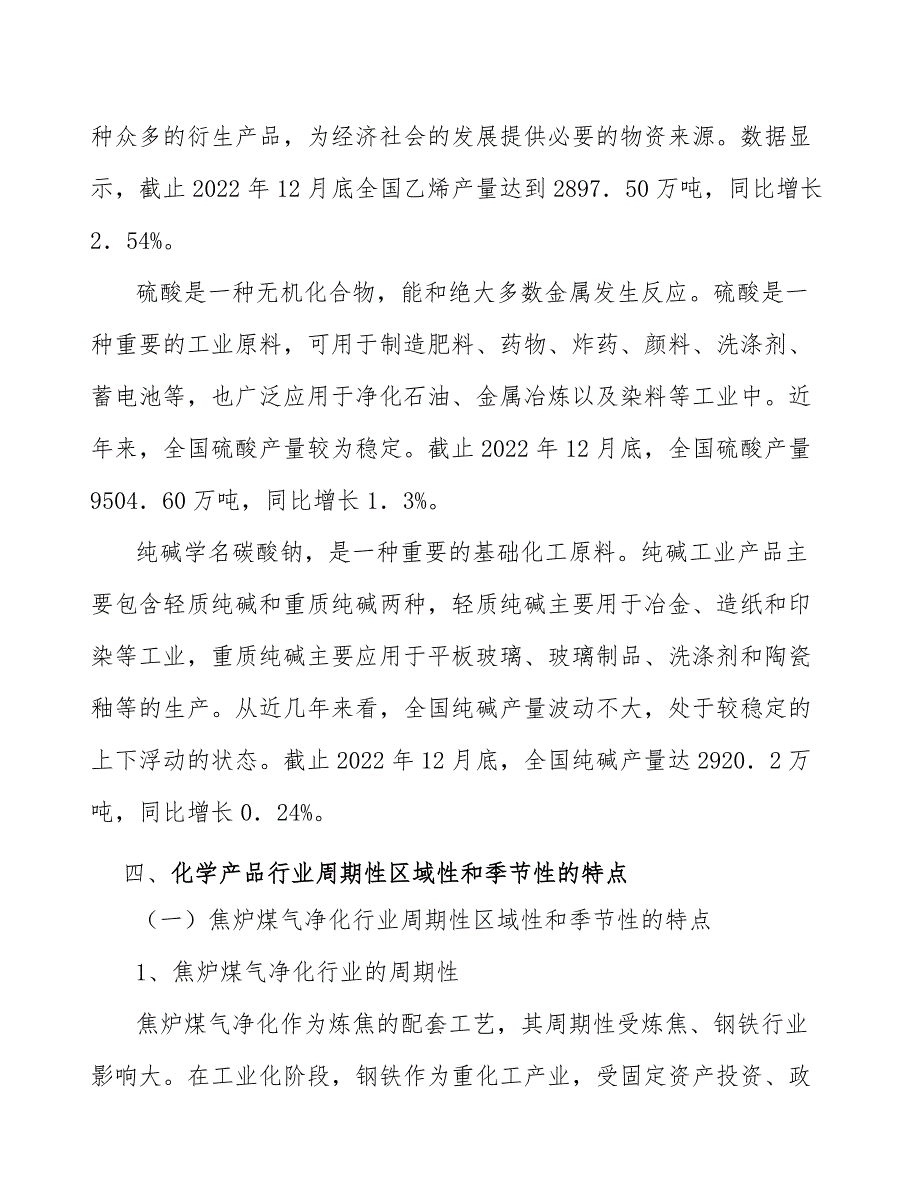 种众多的衍生产品，为经济社会的发展提供必要的物资来源。数据显
示，截止 2022 年 12 月底全国乙烯产量达到 2897．50 万吨，同比增长
2．54%。
硫酸是一种无机化合物，能和绝大多数金属发生反应。硫酸是一
种重要的工业原料，可用于制造肥料、药物、炸药、颜料、洗涤剂、
蓄电池等，也广泛应用于净化石油、金属冶炼以及染料等工业中。近
年来，全国硫酸产量较为稳定。截止 2022 年 12 月底，全国硫酸产量
9504．60 万吨，同比增长 1．3%。
纯碱学名碳酸钠，是一种重要的基础化工原料。纯碱工业产品主
要包含轻质纯碱和重质纯碱两种，轻质纯碱主要用于冶金、造纸和印
染等工业，重质纯碱主要应用于平板玻璃、玻璃制品、洗涤剂和陶瓷
釉等的生产。从近几年来看，全国纯碱产量波动不大，处于较稳定的
上下浮动的状态。截止 2022 年 12 月底，全国纯碱产量达 2920．2 万
吨，同比增长 0．24%。
四、化学产品行业周期性区域性和季节性的特点
（一）焦炉煤气净化行业周期性区域性和季节性的特点
1、焦炉煤气净化行业的周期性
焦炉煤气净化作为炼焦的配套工艺，其周期性受炼焦、钢铁行业
影响大。在工业化阶段，钢铁作为重化工产业，受固定资产投资、政